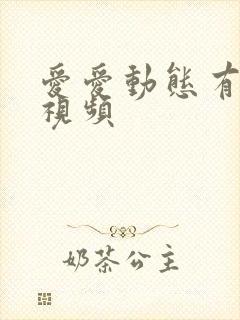 愛愛動態有
視頻
奶茶公主